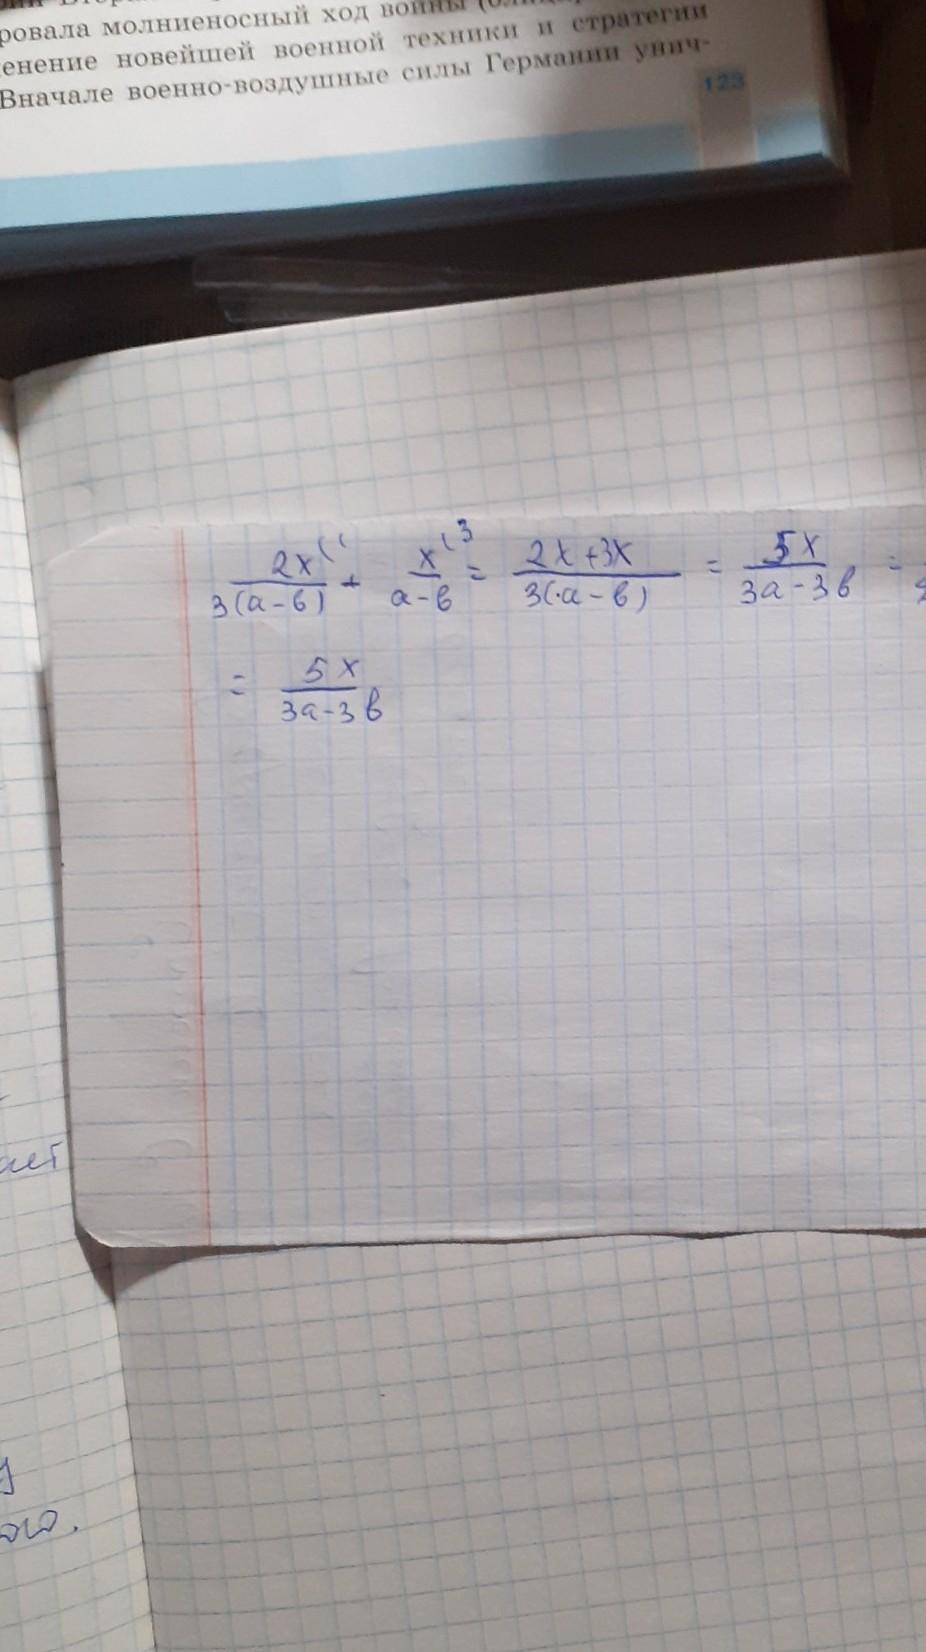 ровала молниеносный ход войны
енение новейшей военной техники и стратегии
Вначале военно-воздушные силы Германии унич-
123
2x/(3(a-b)) + x/(a-b) (3 = (2x+3x)/(3(·a-b)) = 5x/(3a-3b) =
= 5x/(3a-3b)
ает
ого.